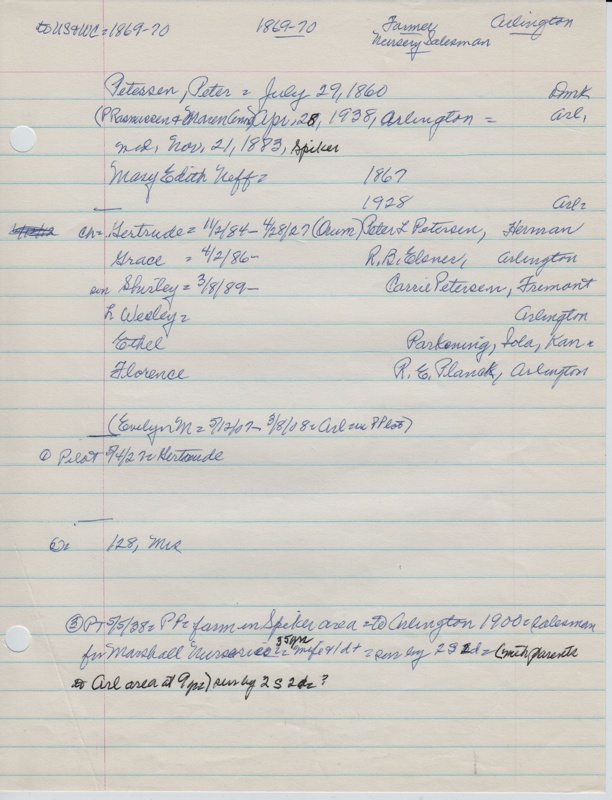 to US & WC = 1869-70 1869-70 Farmer Arlington
Nursery Salesman
Petersen, Peter = July 29, 1860 Dmk
(P Rasmussen & Maren Ann) Apr. 28, 1938, Arlington = Arl,
md, Nov, 21, 1883, Spiker
Mary Edith Neff = 1867
1928 Arl =
ch = Gertrude = 11/2/84 - 4/28/27 (Oum) Peter L Petersen, Herman
Grace = 4/2/86 - R. B. Elsner, Arlington
son Shirley = 3/8/89 - Carrie Petersen, Fremont
L Wesley = Arlington
Ethel Parkening, Iola, Kan =
Florence R. E. Planck, Arlington
(Evelyn M = 5/12/07 - 3/8/08 = Arl = in P Plot)
① Pilot 5/4/27 = Gertrude
128, Mrs
③ P + 5/5/38 = PP = farm in Spiker area = to Arlington 1900 = Salesman
for Marshall Nurseries 35 yrs = wife & 1 d + = sur by 2 S 2 d = (with parents
to Arl area at 9 yrs) sur by 2 S 2 d = ?